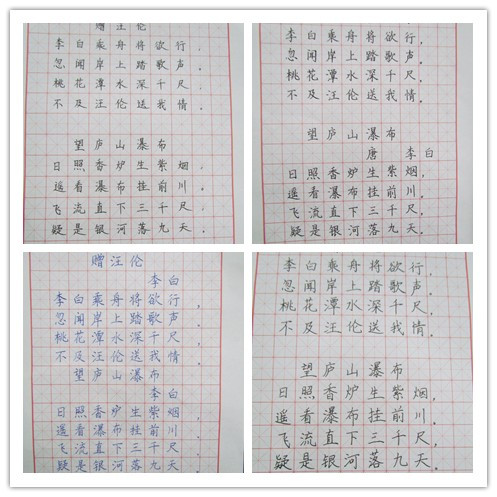 赠汪伦
李白乘舟将欲行.
忽闻岸上踏歌声.
桃花潭水深千尺.
不及汪伦送我情.
望庐山瀑布
日照香炉生紫烟.
遥看瀑布挂前川.
飞流直下三千尺
疑是银河落九天.
李白乘舟将欲行,
忽闻岸上踏歌声。
桃花潭水深千尺,
不及汪伦送我情。
望庐山瀑布
唐 李白
日照香炉生紫烟,
遥看瀑布挂前川。
飞流直下三千尺,
疑是银河落九天。
赠汪伦
李白
李白乘舟将欲行,
忽闻岸上踏歌声。
桃花潭水深千尺,
不及汪伦送我情。
望庐山瀑布
李白
日照香炉生紫烟,
遥看瀑布挂前川。
飞流直下三千尺,
疑是银河落九天。
李白乘舟将欲行,
忽闻岸上踏歌声。
桃花潭水深千尺,
不及汪伦送我情。
望庐山瀑布
日照香炉生紫烟,
遥看瀑布挂前川。
飞流直下三千尺,
疑是银河落九天。